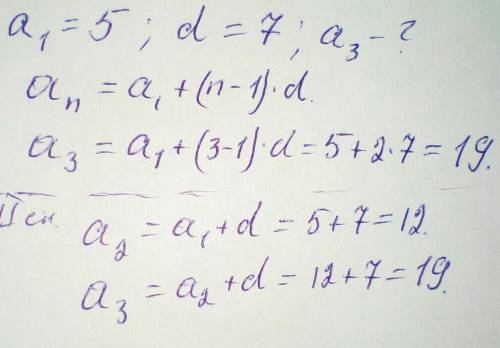 a₁ = 5 ; d = 7 ; a₃ - ?
aₙ = a₁ + (n - 1) · d.
a₃ = a₁ + (3 - 1) · d = 5 + 2 · 7 = 19.
II сп. a₂ = a₁ + d = 5 + 7 = 12.
a₃ = a₂ + d = 12 + 7 = 19.